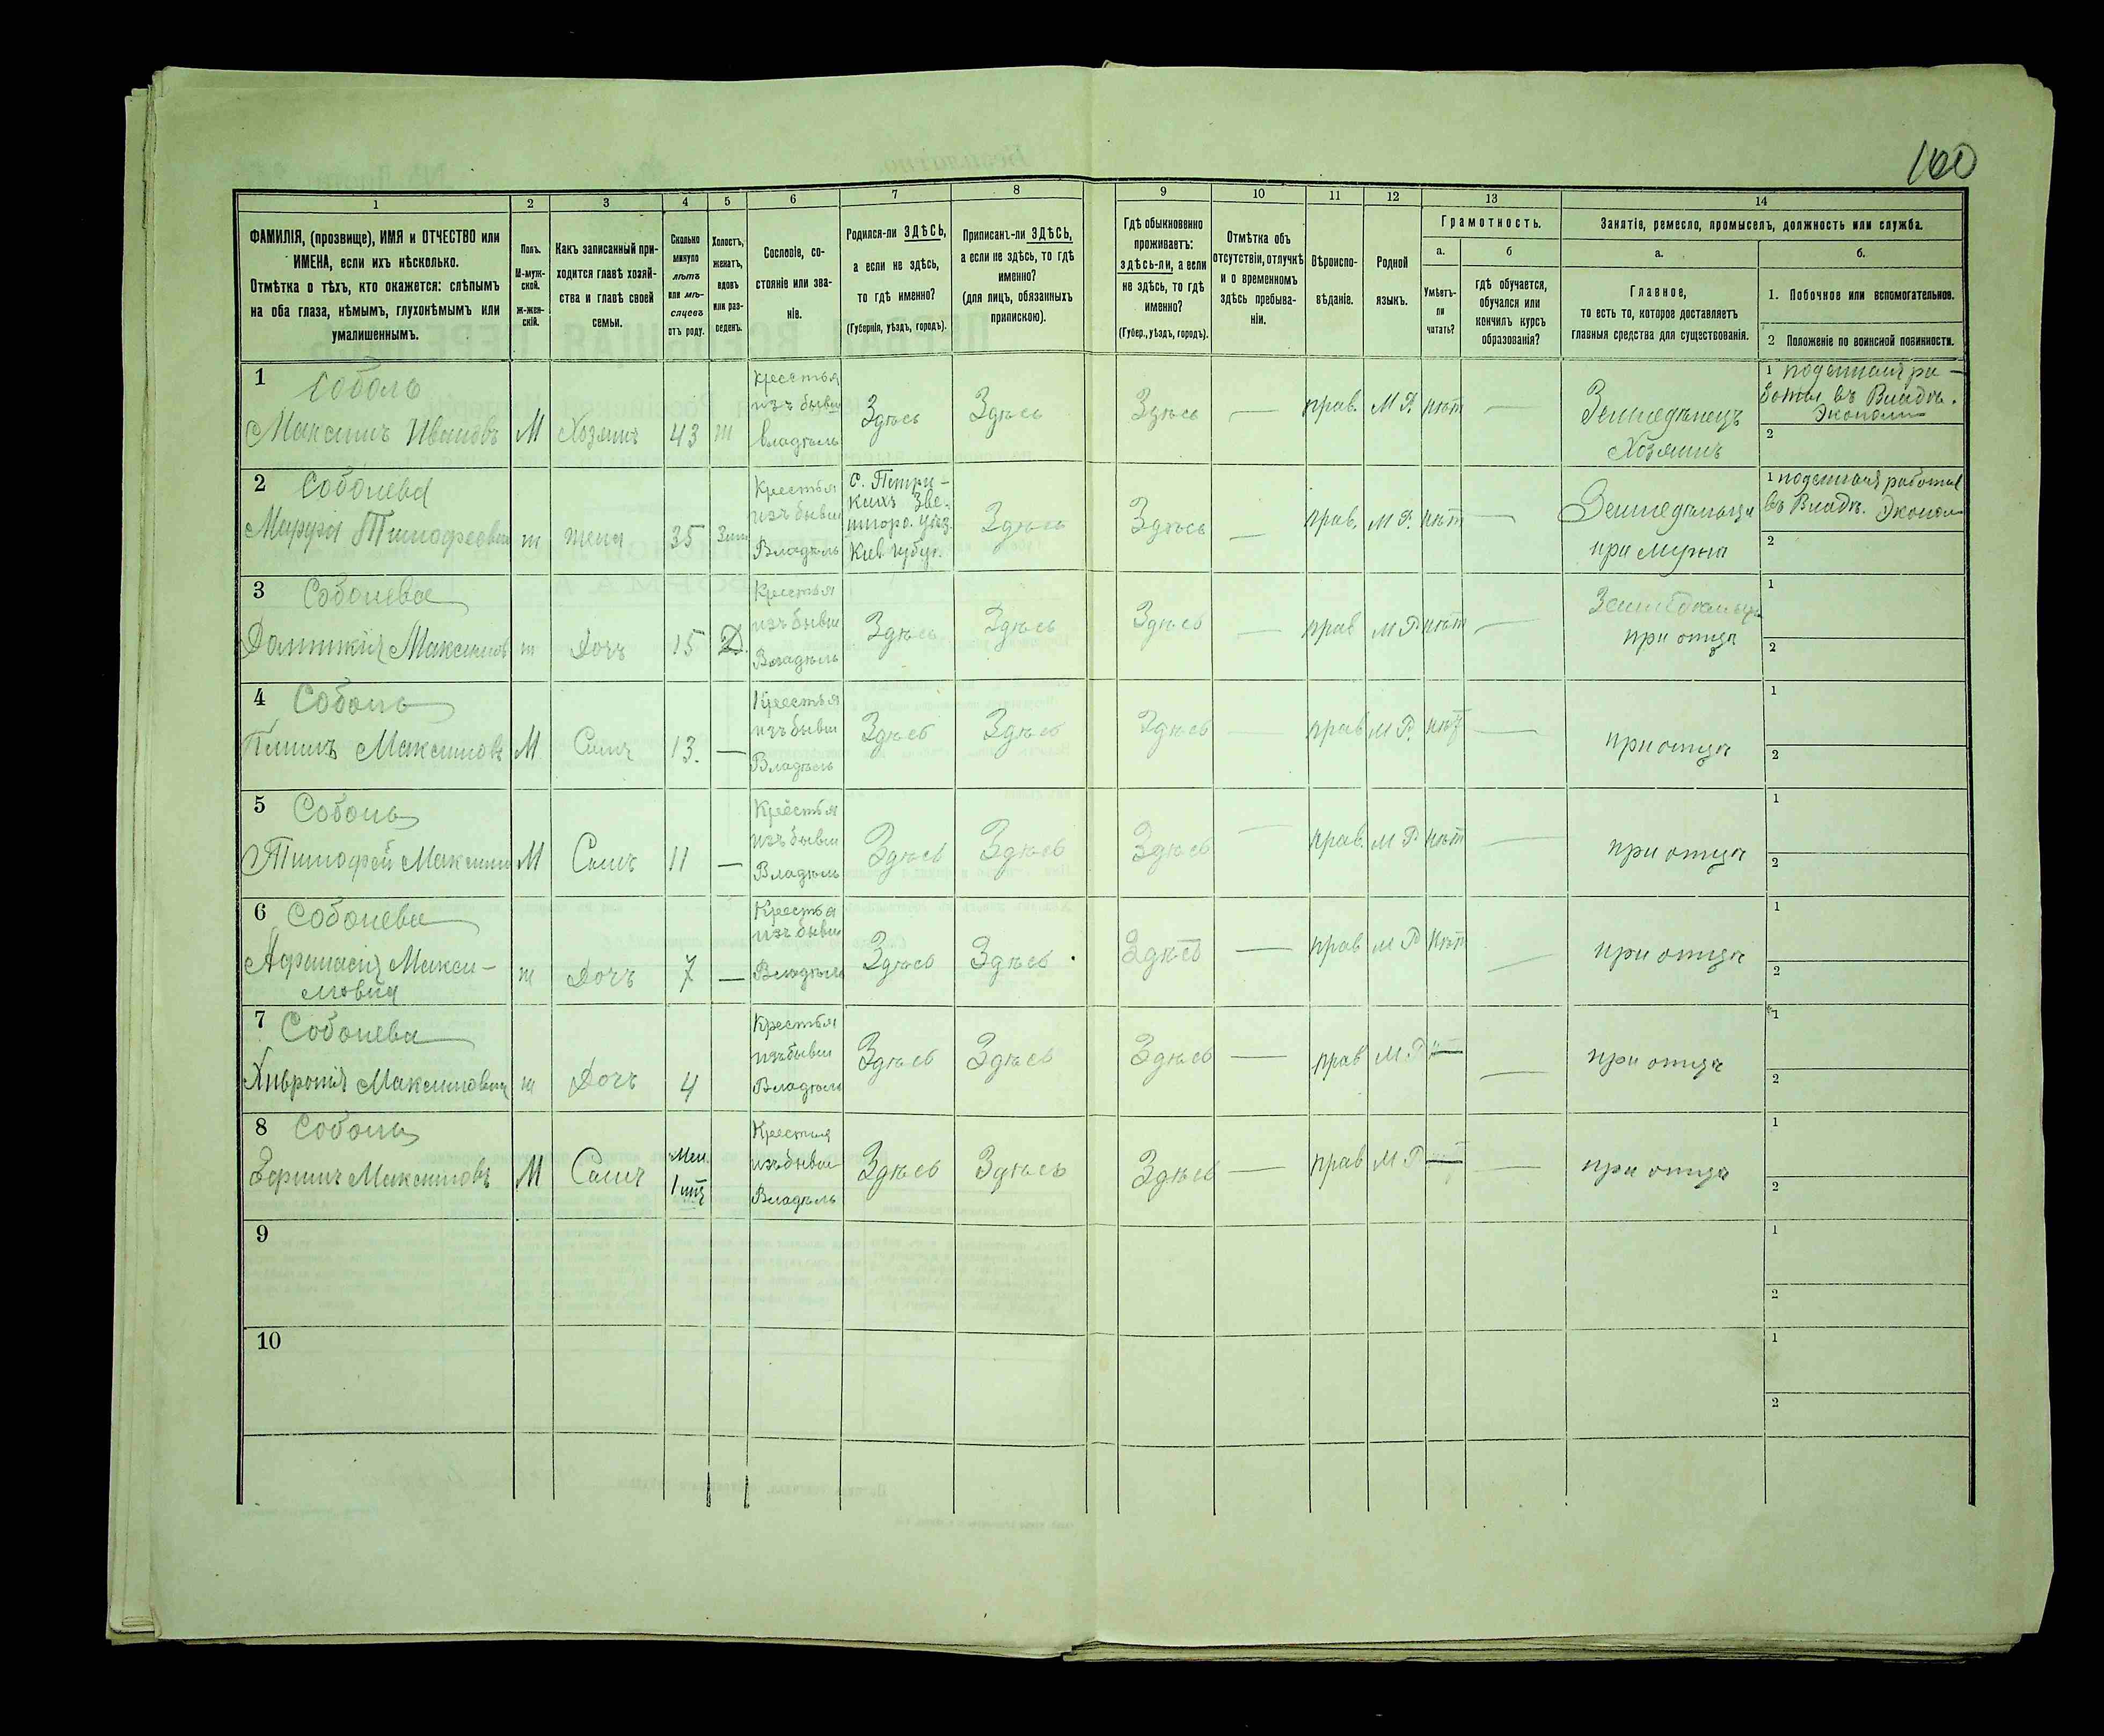 160
1 2 3 4 5 6 7 8 9 10 11 12 13 14
ФАМИЛІЯ, (прозвище), ИМЯ и ОТЧЕСТВО или
ИМЕНА, если ихъ нѣсколько.
Отмѣтка о тѣхъ, кто окажется: слѣпымъ
на оба глаза, нѣмымъ, глухонѣмымъ или
умалишеннымъ.
Полъ.
М-муж-
ской.
ж-жен-
скій.
Какъ записанный при-
ходится главѣ хозяй-
ства и главѣ своей
семьи.
Сколько
минуло
лѣтъ
или мѣ-
сяцевъ
отъ роду.
Холостъ,
женатъ,
вдовъ
или раз-
веденъ.
Сословіе, со-
стояніе или зва-
ніе.
Родился-ли ЗДѢСЬ,
а если не здѣсь,
то гдѣ именно?
(Губернія, уѣздъ, городъ).
Приписанъ-ли ЗДѢСЬ,
а если не здѣсь, то гдѣ
именно?
(для лицъ, обязанныхъ
припискою).
Гдѣ обыкновенно
проживаетъ:
здѣсь-ли, а если
не здѣсь, то гдѣ
именно?
(Губер., уѣздъ, городъ).
Отмѣтка объ
отсутствіи, отлучкѣ
и о временномъ
здѣсь пребыва-
ніи.
Вѣроиспо-
вѣданіе.
Родной
языкъ.
Грамотность.
а.
Умѣетъ-
ли
читать?
б
гдѣ обучается,
обучался или
кончилъ курсъ
образованія?
Занятіе, ремесло, промыселъ, должность или служба.
а.
Главное,
то есть то, которое доставляетъ
главныя средства для существованія.
б.
1. Побочное или вспомогательное.
2 Положеніе по воинской повинности.
1 Соболь
Максимъ Ивановъ
М
Хозяинъ
43
ж
Крестья
изъ бывш
владѣль
Здѣсь
Здѣсь
Здѣсь
—
прав.
М Р.
нѣт
—
Земледѣлецъ
Хозяинъ
1 поденная ра-
боты въ Владѣ.
Эконом
2
2 Соболева
Марфа Тимофеевна
ж
жена
35
Зам
Крестья
изъ бывш
Владѣль
Здѣсь
Здѣсь
—
прав.
М Р.
нѣт
—
Земледѣльца
при мужѣ
1 поденная работа
въ Владѣ. Эконом
2
3 Соболева
Максимов
ж
Дочь
15
Д.
Крестья
изъ бывш
Владѣль
Здѣсь
Здѣсь
Здѣсь
—
прав
М Р
нѣт
—
Земледѣльца
при отцѣ
1
2
4 Соболь
Максимовъ
М
Сынъ
13.
—
Крестья
изъ бывш
Владѣль
Здѣсь
Здѣсь
Здѣсь
—
прав
М Р.
нѣт
—
при отцѣ
1
2
5 Соболь
Тимофей Максим
М
Сынъ
11
—
Крестья
изъ бывш
Владѣль
Здѣсь
Здѣсь
Здѣсь
—
прав.
М Р
нѣт
—
при отцѣ
1
2
6 Соболева
Афанасія Макси-
мовна
ж
Дочь
7
—
Крестья
изъ бывш
Владѣль
Здѣсь
Здѣсь
Здѣсь
—
прав
М Р
нѣт
—
при отцѣ
1
2
7 Соболева
Хивронія Максимовна
ж
Дочь
4
Крестья
изъ бывш
Владѣль
Здѣсь
Здѣсь
Здѣсь
—
прав
М Р
—
—
при отцѣ
1
2
8 Соболь
Ефимъ Максимовъ
М
Сынъ
Крестья
изъ бывш
Владѣль
Здѣсь
Здѣсь
Здѣсь
—
прав
М Р
—
—
при отцѣ
1
2
9
1
2
10
1
2